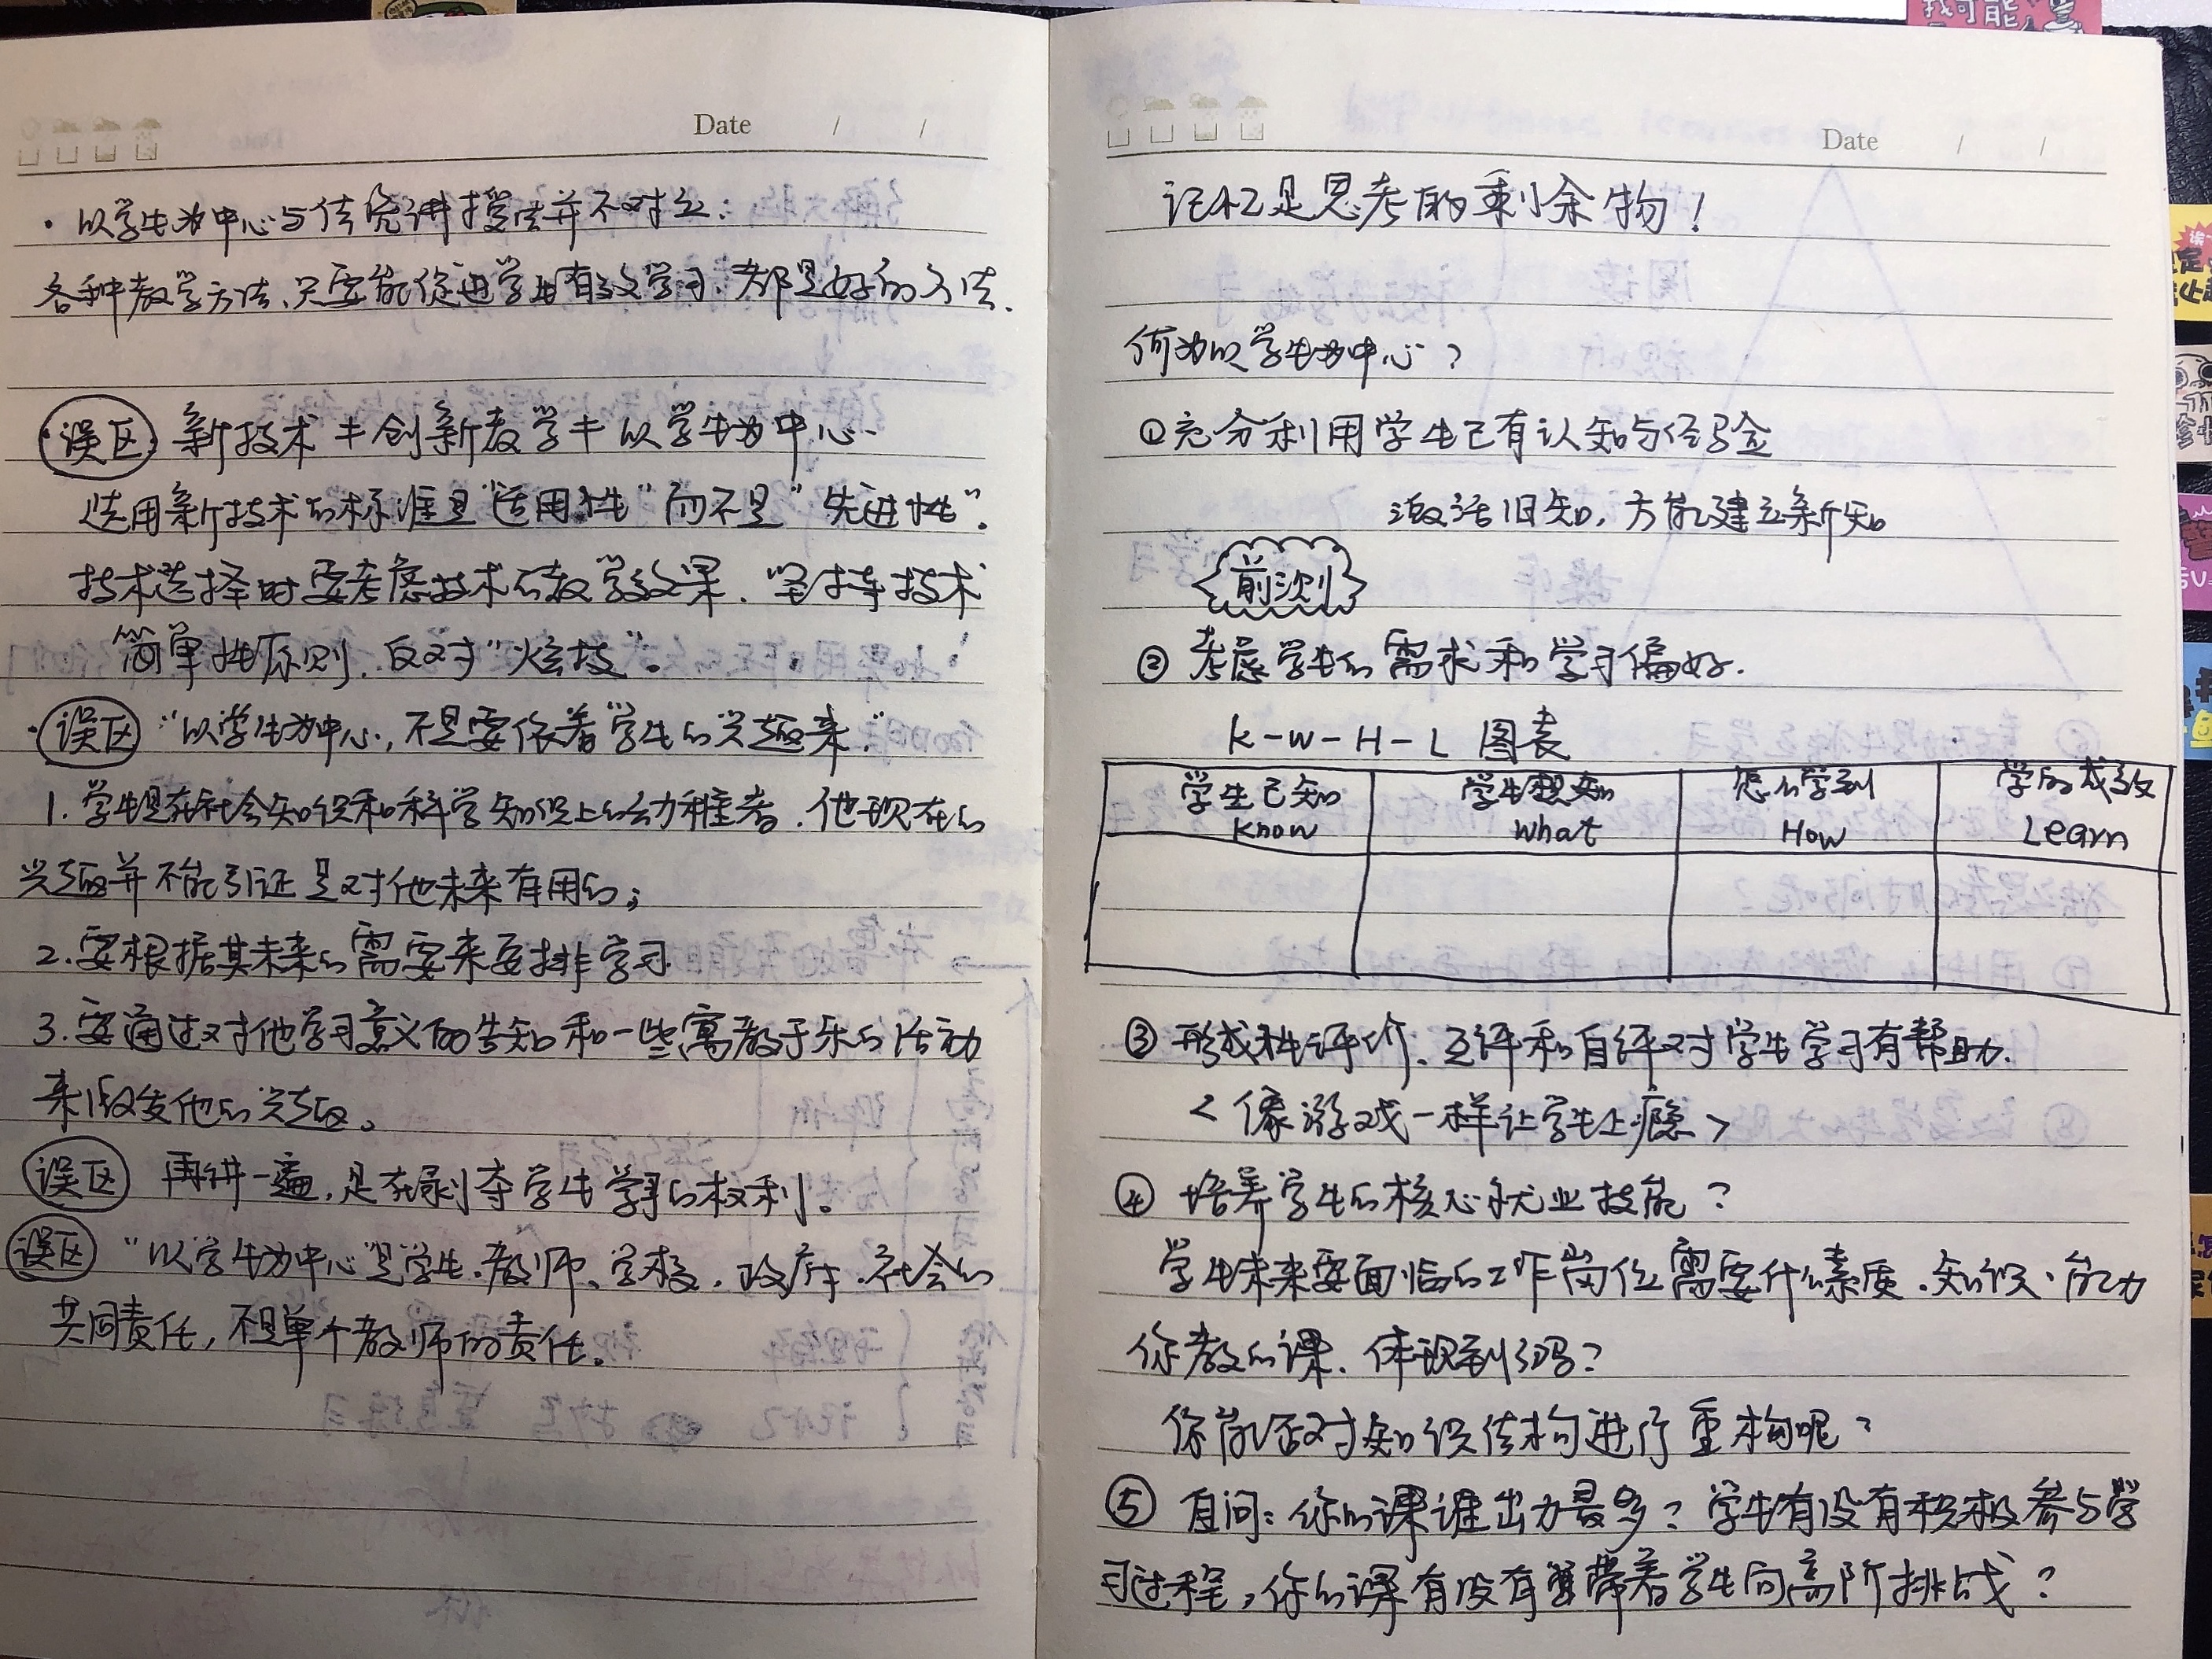 Date / /
· 以学生为中心与传统讲授法并不对立：
各种教学方法、只要能促进学生有效学习、都是好的方法.
误区 新技术≠创新教学≠以学生为中心
选用新技术的标准是“适用性”而不是“先进性”。
技术选择时要考虑技术的教学效果、坚持技术
简单性原则、反对“炫技”。
· 误区 “以学生为中心，不是要依着学生的兴趣来”
1. 学生是在社会知识和科学知识上的幼稚者、他现在的
兴趣并不能引证是对他未来有用的；
2. 要根据其未来的需要来安排学习
3. 要通过对他学习意义的告知和一些寓教于乐的活动
来激发他的兴趣。
误区 再讲一遍，是在剥夺学生学习的权利。
误区 “以学生为中心”是学生、教师、学校、政府、社会的
共同责任，不是单个教师的责任。
Date / /
记忆是思考的剩余物！
何为以学生为中心？
①充分利用学生已有认知与经验
激活旧知，方能建立新知
前测
② 考虑学生的需求和学习偏好.
K-W-H-L 图表
学生已知 学生想知 怎么学到 学的成效
Know What How Learn
③ 形成性评价、互评和自评对学生学习有帮助.
＜像游戏一样让学生上瘾＞
④ 培养学生的核心就业技能？
学生未来要面临的工作岗位需要什么素质、知识、能力
你教的课、体现到了吗？
你能否对知识结构进行重构呢？
⑤ 自问：你的课谁出力最多？学生有没有积极参与学
习过程，你的课有没有带着学生向高阶挑战？
找可能